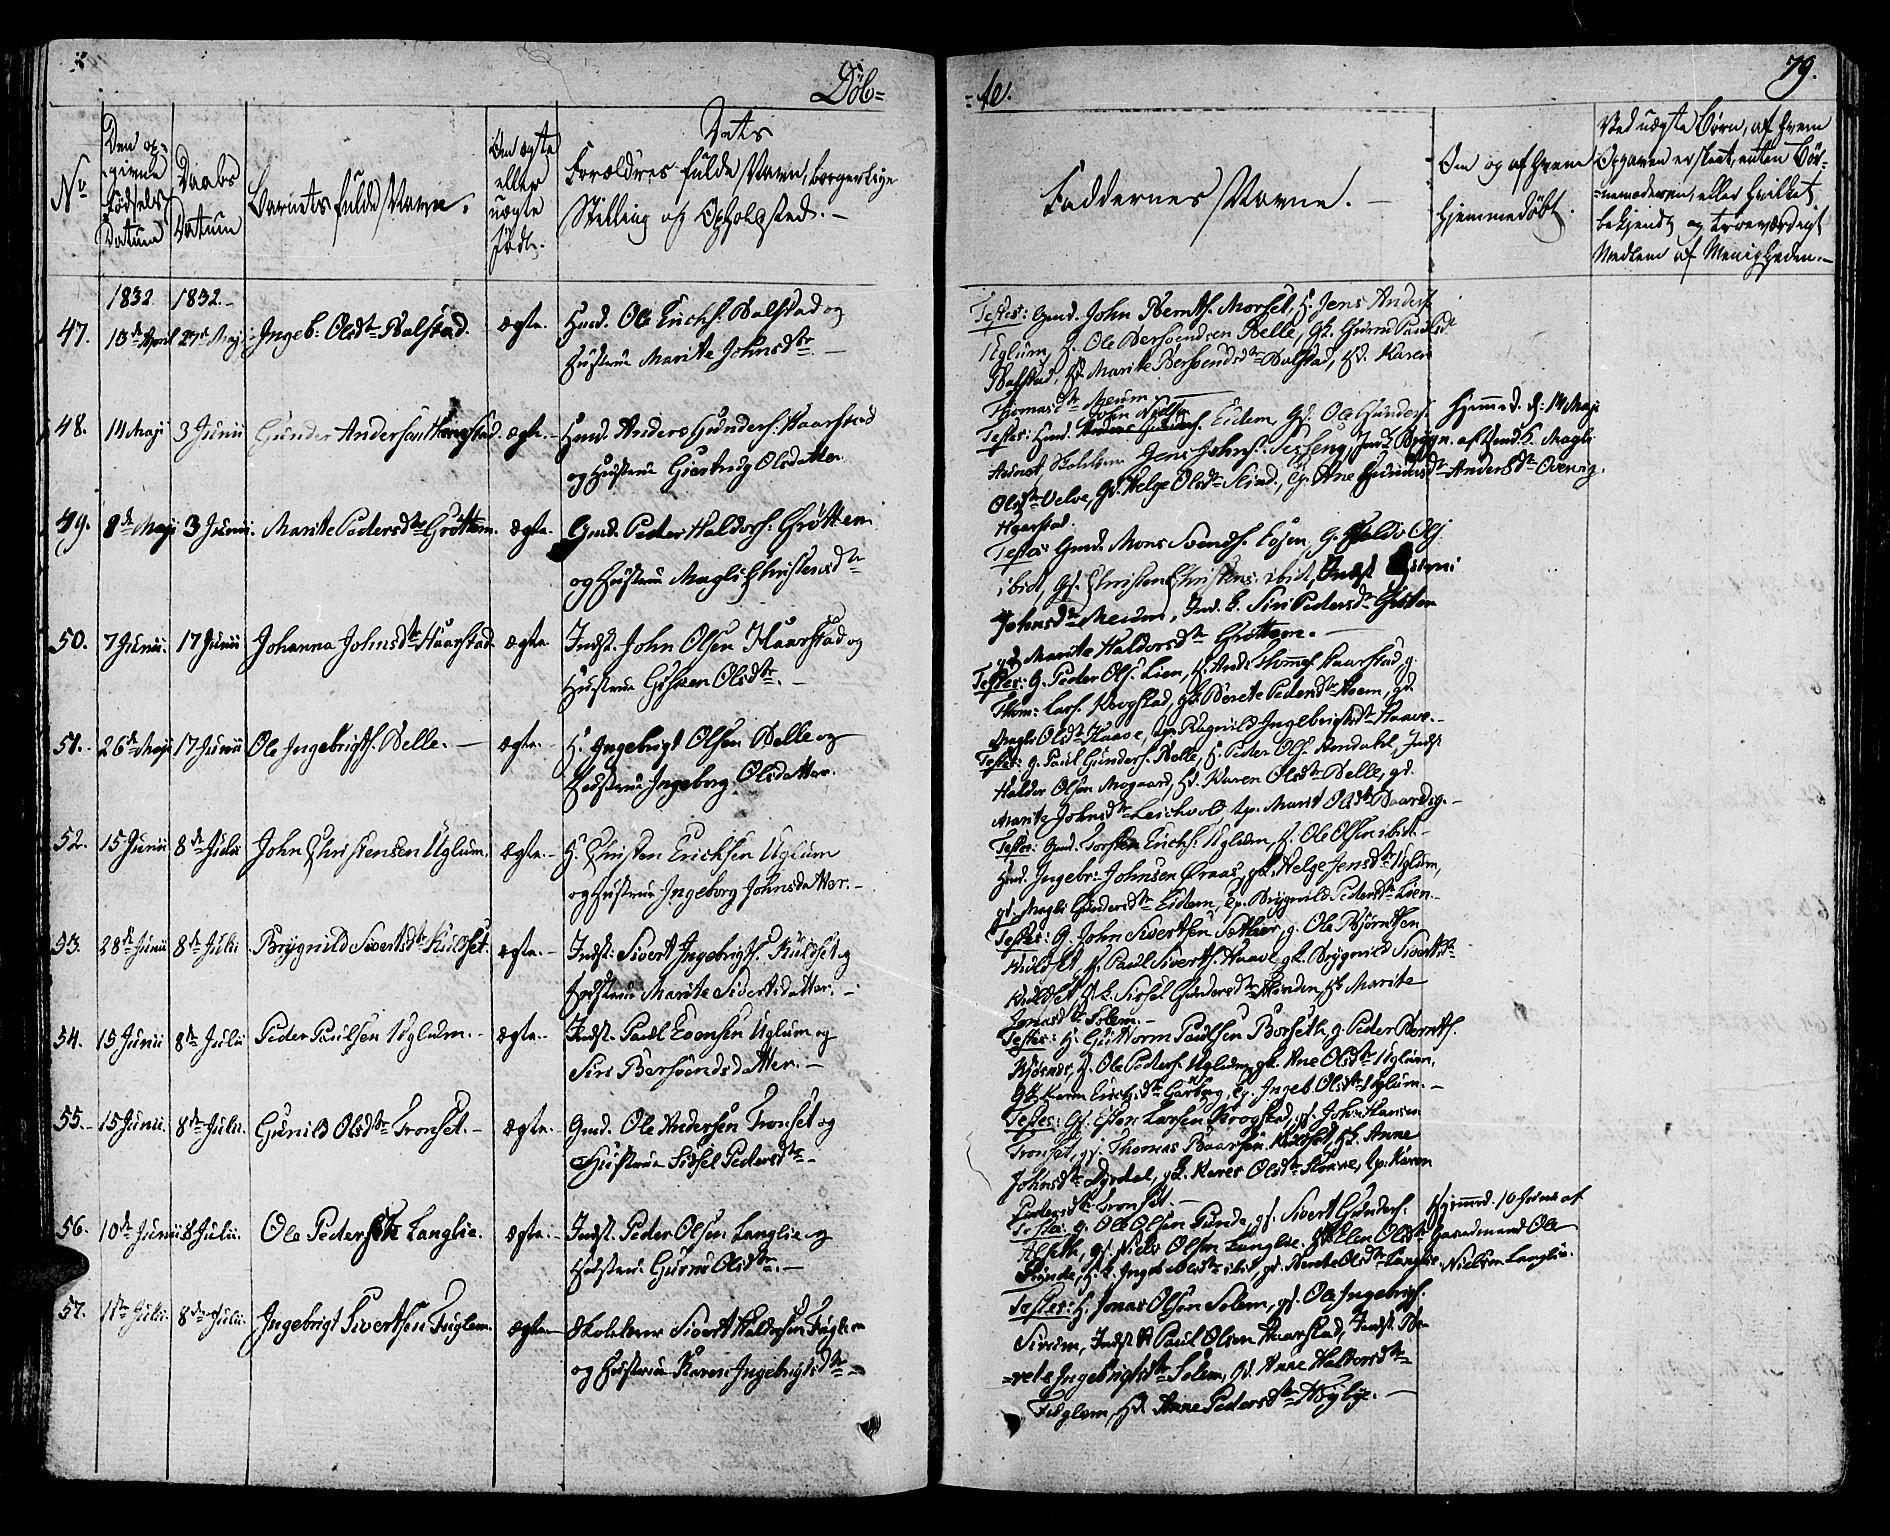 Døb=
=te.
79.
No
Den op=
givne
Fødsels
Datum
Daabs
Datum
Barnets fulde Navn.
Om ægte
eller
uægte
født.
Dets
Forældres fulde Navn, borgerlige
Stilling og Opholdsted. —
Faddernes Navne. —
Om og af hvem
hjemmedøbt.
Ved uægte Børn, af hvem
Opgaven er skeet, enten Bør=
nemoderen, eller hvilket
bekjendt og troeværdigt
Medlem af Menigheden. —
1832 1832.
47. 13de April 27de Maji Ingeb: Olsdtr Balstad. ægte. Huusm. Ole Erichs. Balstad og
Hustrue Marite Johnsdtr. —
Testes: Gmd. John Berntsen Morset, H. Jens Anders.
Uglum, H. Ole Bersvendsen Selle, Gk. Guru Paulsdtr
Balstad, Hk. Marite Bersvendsdtr Balstad, Hd. Karen
Thomasdtr Meium
48. 14 Maji 3 Junii Gunder Andersen Haarstad. ægte. — Huusm. Anders Gunders. Haarstad
og Hustrue Gjertrug Olsdatter.
Testes: Huusm. John Eidem, Gs. Ole Gunders.
Jens Johns. Sesseng, Brygn.
Olsdtr Velve, Gd. Helge Olsdtr Slind, Ep. Ane Gundersdtr
Haarstad.
Hjemmed. d: 14 Maji
af Magli
Andersdtr Overvig.
49. 8de Maji 3 Junii. Marite Pedersdtr Grøttem. ægte. Gmd. Peder Haldors. Grøttem
og Hustrue Magli Christensdtr
Testes: Gmd. Mons Svends. G. Haldo Ols.
ibid, Gs. Christen Christens. ibid, Inds.
Johnsdtr Meium, Ind. k. Siri Pedersdtr
gd. Marite Haldorsdtr Grøttem. —
50. 7 Junii. 17 Junii Johanna Johnsdtr Haarstad ægte Inds. John Olsen Haarstad og
Hustrue Olsdtr. —
Testes: G. Peder Ols. Lien, Haarstad, g.
Thom: Lars. Krogstad, gk. Berete Pedersdtr Moem, gd.
Magli Olsdtr Haave, Ep. Ragnild Ingebrigtsdtr Haave. —
51. — 26de Maji 17 Junii Ole Ingebrigts. Selle. — ægte. H. Ingebrigt Olsen Selle og
Hustrue Ingeborg Olsdatter.
Testes: G. Paul Gunders. Selle, H. Peder Ols. Rondahl, Inds.
Haldor Olsen Mogaard, Hd. Karen Olsdtr Selle, gd.
Marite Johnsdtr Ep. Marit Olsdtr. —
52. 15 Junii 8de Julii John Christensen Uglum. ægte. — H. Christen Erichsen Uglum
og Hustrue Ingeborg Johnsdatter. —
Testes: Gmd. Torsten Erichs. Uglum, H. Ole Olsen ibid. —
Huusm. Ingebr: Johnsen Draas, gk. Helge Jensdtr Uglum,
gd. Magli Gundersdtr Eidem, Ep. Brÿgnild Pedersdtr Lien. —
53. 28de Junii 8de Julii. Brÿgnild Sivertsdtr Kulset. ægte. — Inds: Sivert Ingebrigts. Kulset og
Hustrue Marite Sivertsdatter. —
Testes: G. John Sivertsen Sether, g. Ole Bjørnsen
Kulset, H. Paul Siverts. Haave, gk. Brÿgnild Sivertsdtr
Kulset, Sirsel Gundersdtr Marite
Jonasdtr Solem. —
54. 15 Junii 8de Julii Peder Paulsen Uglum. — ægte. Inds. Paul Evensen Uglum og
Siri Bersvendsdatter. —
Testes: H. Guttorm Paulsen Borseth, g. Peder Bernts.
Kjøsnæs, H. Ole Peders. Uglum, gk. Ane Olsdtr Uglum,
Gk. Karen Erichsdtr Garberg, Ep. Ingeb. Olsdtr Uglum. —
55. — 15 Junii. 8de Julii. Gunild Olsdtr Tronset. — ægte. Gmd. Ole Andersen Tronset og
Hustrue Sirsel Pedersdtr —
Testes: Gs. Esten Larsen Krogstad, gs. John Hansen
Tronset, gs. Thomas Baarsen Kulset, Anne
Johnsdtr Dyrdal, gk. Karen Olsdtr Haave, Ep. Karen
Pedersdtr Tronset. —
56. 10de Junii 8 Julii. Ole Pedersen Langlie. ægte. — Inds. Peder Olsen Langlie og
Hustrue Guru Olsdtr. —
Testes: G. Ole Olsen Gunde, gs. Sivert Gunders.
Alseth, gs. Niels Olsen Langlie, Ellen Olsdtr
Ingeb: Olsdtr ibid, gd. Berete Olsdtr Langlie.
Hjemmed. 10 Junii af
Gaardmand Ole
Nielsen Langlie.
57. 1ste Julii. 8de Julii. Ingebrigt Sivertsen Fuglem. ægte — Skoleholder Sivert Haldorsen Fuglem
og Hustrue Karen Ingebrigtsdtr —
Testes: H. Jonas Olsen Solem, gs. Ole Ingebrigts.
Sirum, Inds. Paul Olsen Haarstad, Inds. Be=
=rete Ingebrigtsdtr Solem, Hd. Anne Haldorsdtr
Fuglem, Hd. Anne Pedersdtr Høybye. —